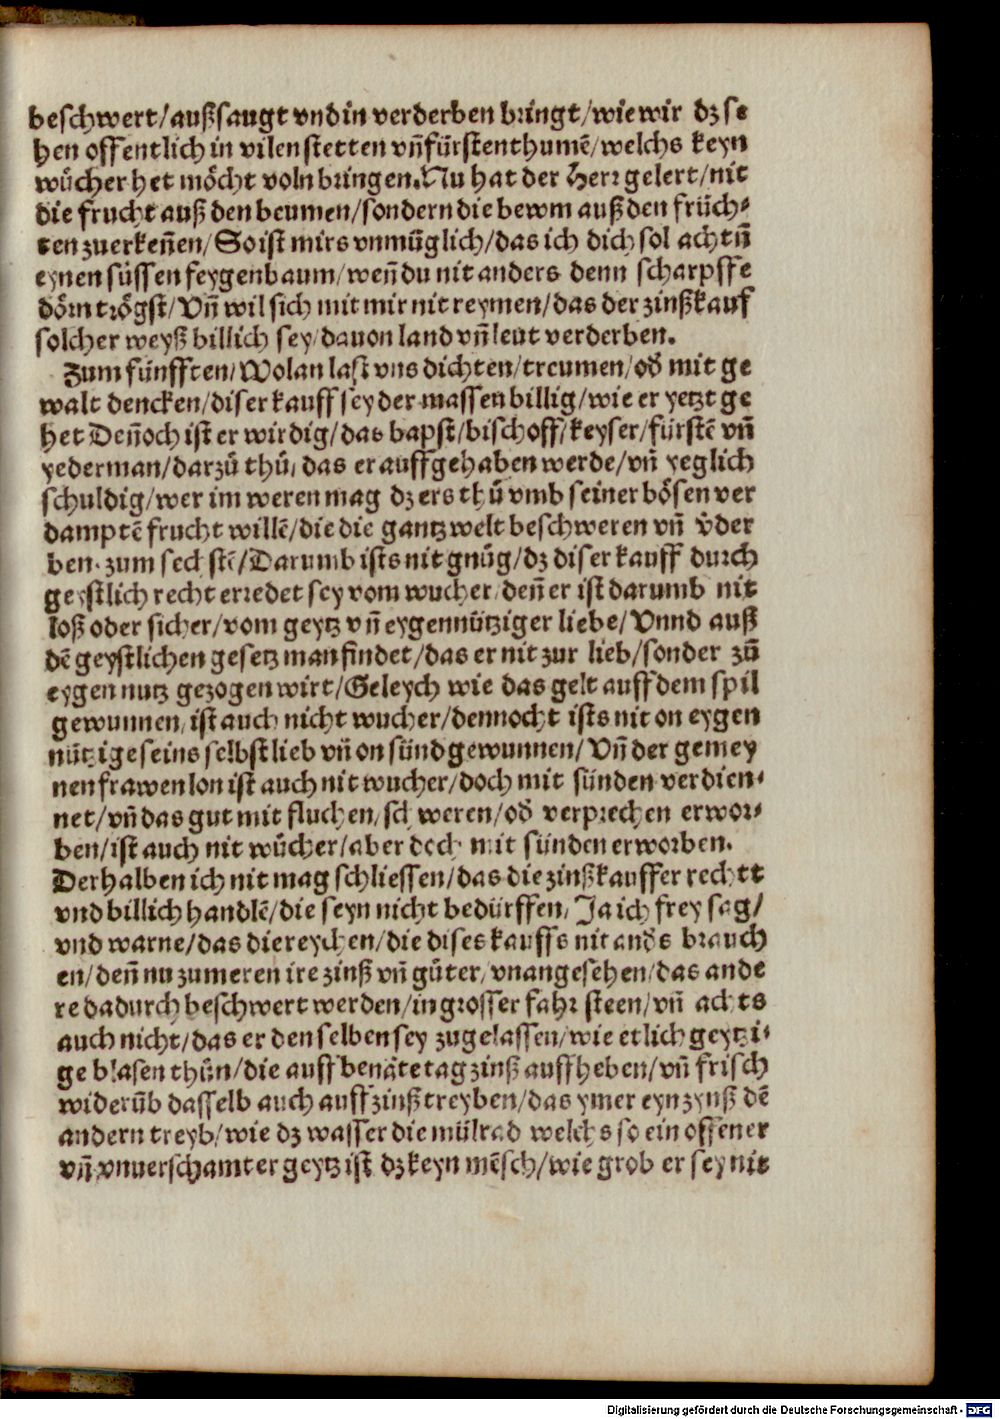 beschwert/außsaugt vnd in verderben bringt/wie wir dz se
hen offentlich in vilen stetten vn̄ fürstenthumē/welchs keyn
wůcher het möcht voln bringen. Nu hat der Herr gelert/nit
die frucht auß den beumen/sondern die bewm auß den früch⸗
ten zuerkeñen/So ist mirs vnmüglich/das ich dich sol achtñ
eynen süssen feygenbaum/weñ du nit anders denn scharpffe
dörn trögst/Vn̄ wil sich mit mir nit reymen/das der zinßkauf
solcher weyß billich sey/dauon land vn̄ leut verderben.
Zum fünfften/Wolan last vns dichten/treumen/od̕ mit ge
walt dencken/diser kauff sey der massen billig/wie er yetzt ge
het Deñoch ist er wirdig/das bapst/bischoff/keyser/fürstē vn̄
yederman/darzů thů/das er auffgehaben werde/vn̄ yeglich
schuldig/wer im weren mag dz ers thů vmb seiner bösen ver
damptē frucht willē/die die gantz welt beschweren vn̄ v̄der
ben. zum sechstē/Darumb ists nit gnůg/dz diser kauff durch
geystlich recht erredet sey vom wucher/deñ er ist darumb nit
loß oder sicher/vom geytz vn̄ eygennütziger liebe/Vnnd auß
dē geystlichen gesetz man findet/das er nit zur lieb/sonder zů
eygen nutz gezogen wirt/Geleych wie das gelt auff dem spil
gewunnen/ist auch nicht wucher/dennocht ists nit on eygen
nützige seins selbst lieb vn̄ on sünd gewunnen/Vn̄ der gemey
nen frawen lon ist auch nit wucher/doch mit sünden verdien⸗
net/vn̄ das gut mit fluchen/schweren/od̕ verprechen erwor⸗
ben/ist auch nit wůcher/aber doch mit sünden erworben.
Derhalben ich nit mag schliessen/das die zinßkauffer rechtt
vnd billich handlē/die seyn nicht bedürffen/Ja ich frey sag/
vnd warne/das die reychen/die dises kauffs nit and̕s brauch
en/deñ nu zumeren ire zinß vn̄ gůter/vnangesehen/das ande
re dadurch beschwert werden/in grosser fahr steen/vn̄ achts
auch nicht/das er den selben sey zugelassen/wie etlich geytzi⸗
ge blasen thůn/die auff benāte tag zinß auffheben/vn̄ frisch
widerūb dasselb auch auff zinß treyben/das ymer eyn zynß dē
andern treyb/wie dz wasser die mülrad welchs so ein offener
vn̄ vnuerschamter geytz ist dz keyn mēsch/wie grob er sey nit
Digitalisierung gefördert durch die Deutsche Forschungsgemeinschaft - DFG